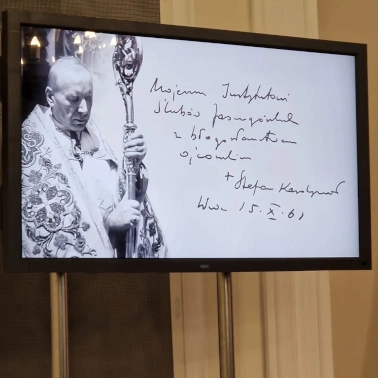 Mojemu Instytutowi
Ślubów Jasnogórskich
z błogosławieństwem
ojcowskim
+ Stefan Kardynał
15. X. 61
NEC